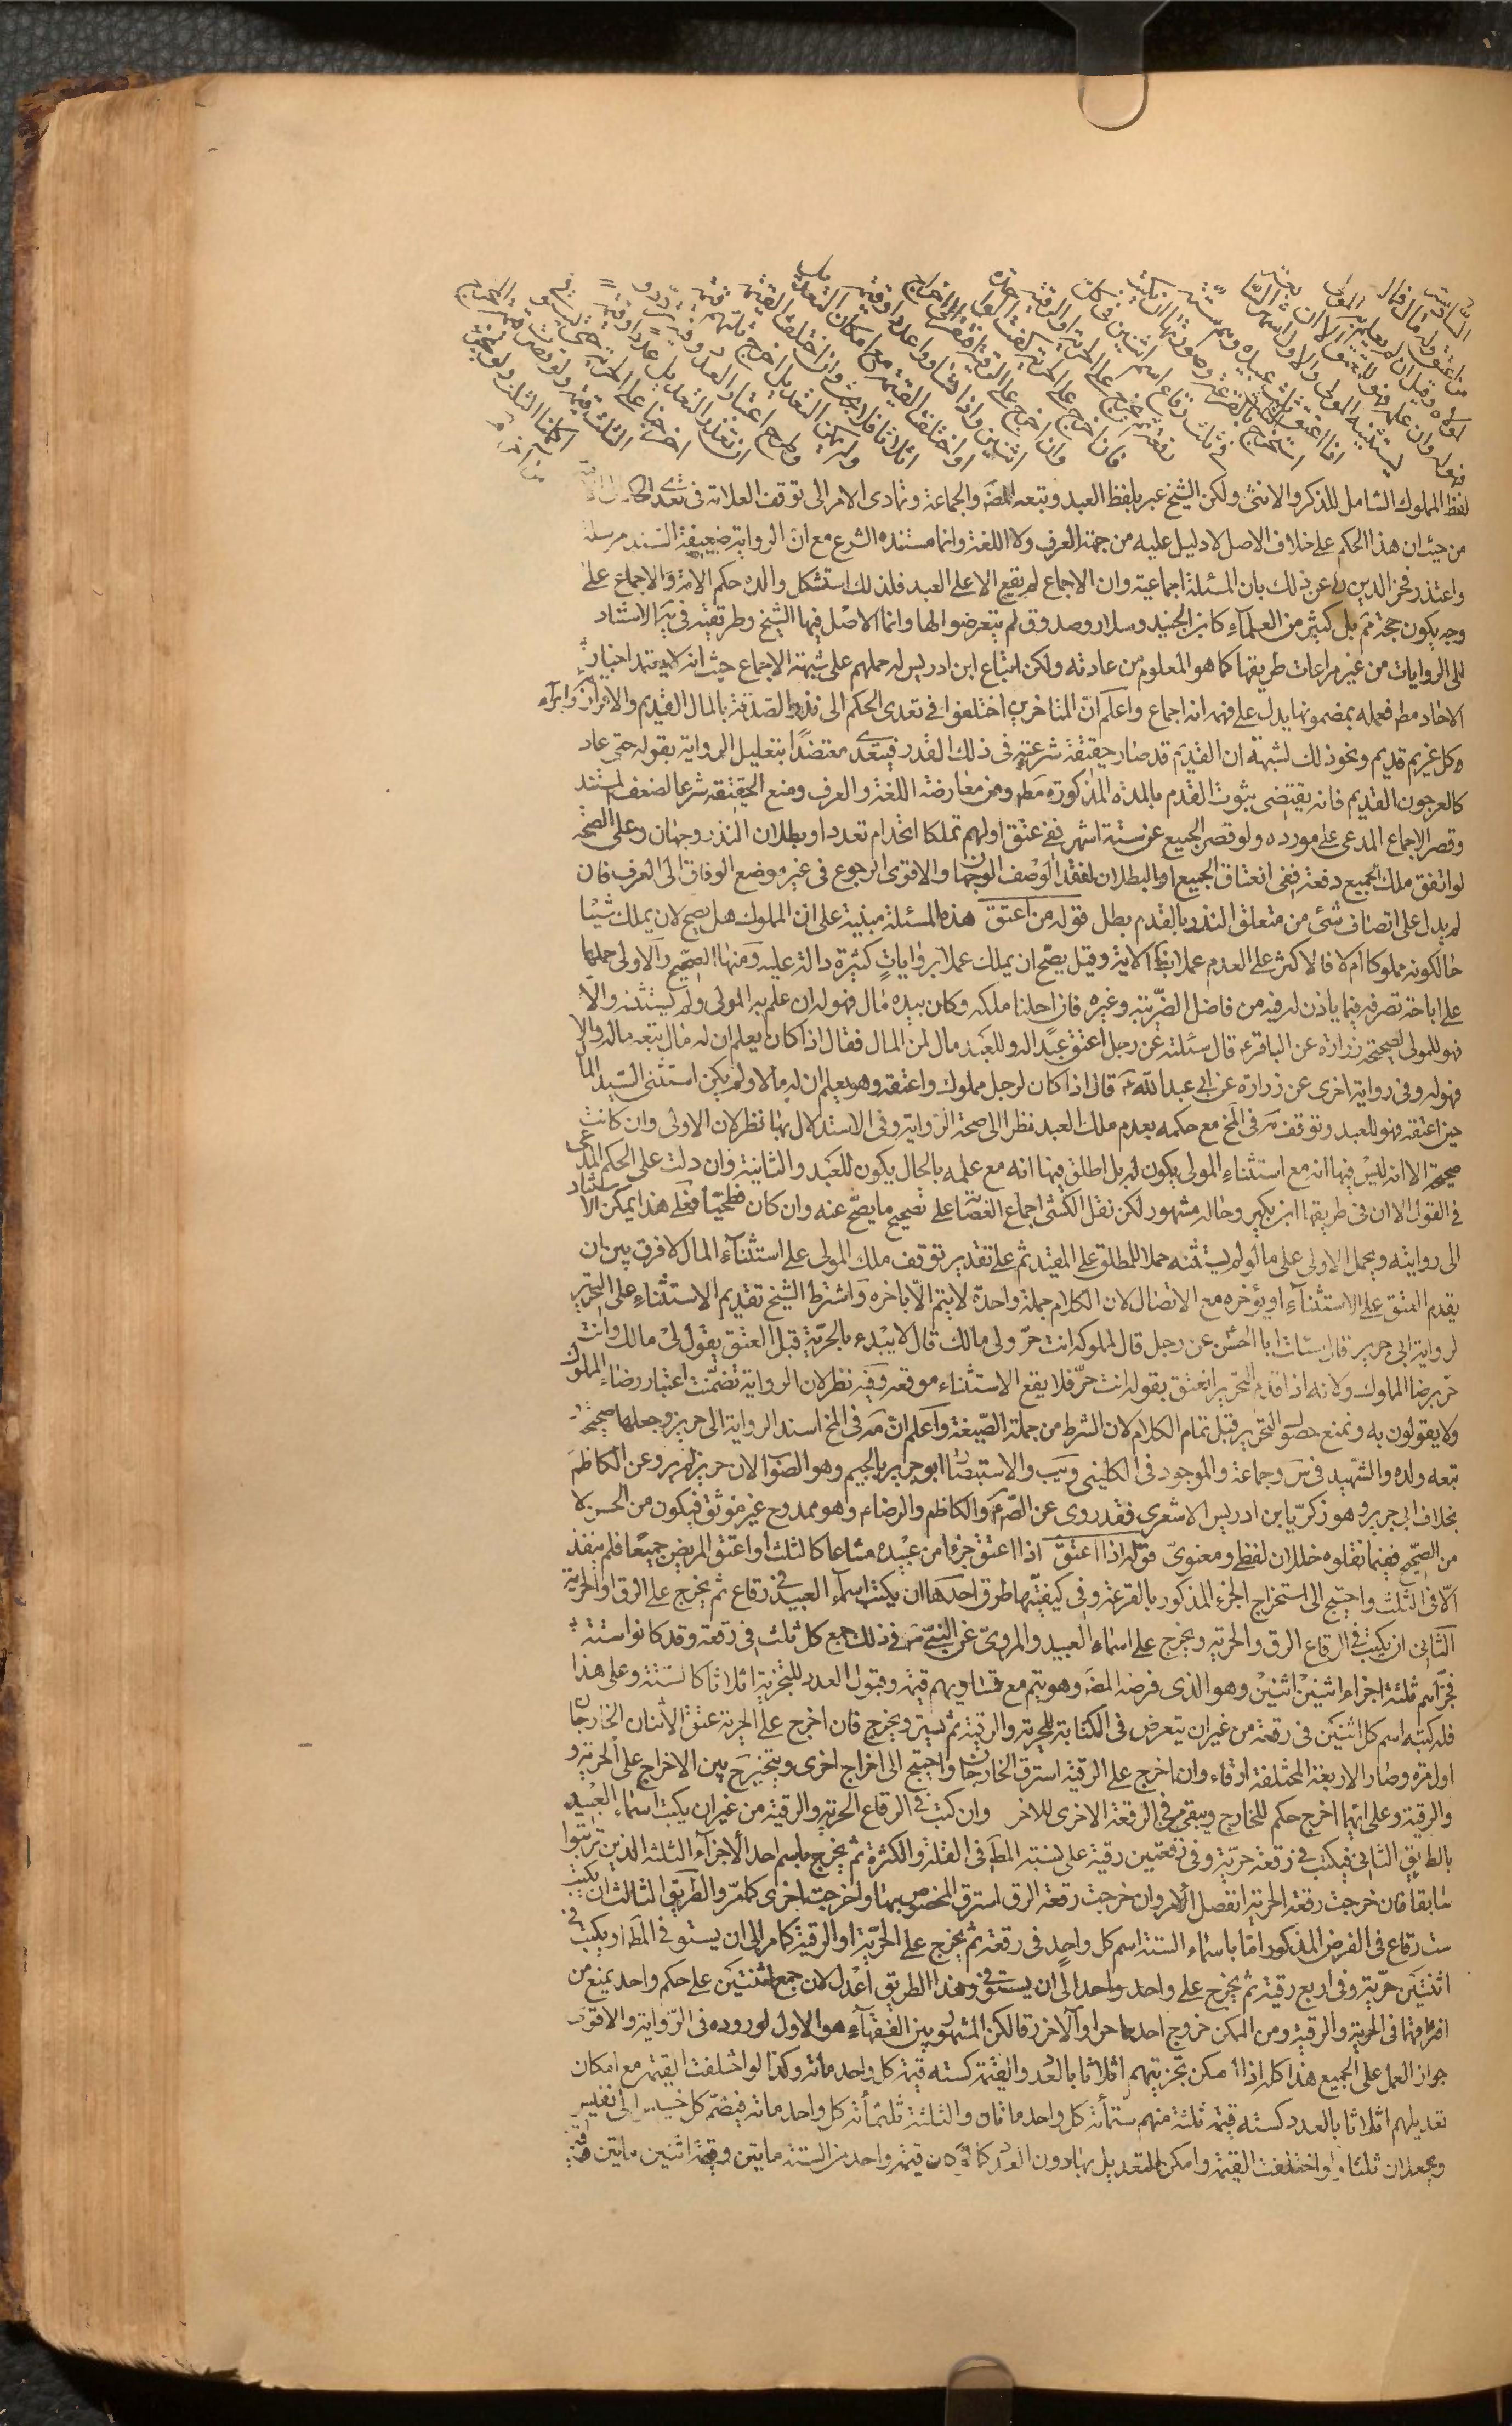 السادسة
من اعتق وله مال فماله
لمولاه وقيل ان لم يعلم به المولى
فهو له وان علمه فهو للمعتق الا ان
يستثنيه المولى والاول اشهر
اذا اعتق ثلث عبيده وهم ستة
استخرج بالقرعة وصورتها ان يكتب
في ثلث رقاع اسم اثنين في كل
رقعة ثم يخرج على الحرية او الرقية
فان اخرج على الحرية كفت الواحدة
وان اخرج على الرقية افتقر الى اخراج
اثنين واذا تساووا عددا وقيمة
او اختلفت القيمة مع امكان التعديل
اثلاثا فلا بحث وان اختلفت القيمة
ولم يمكن التعديل اخرج ثلثهم قيمة
وطرح اعتبار العدد وفيه تردد
ان تعذر التعديل عددا وقيمة
اخرجنا على الحرية حتى يستوفى
الثلث قيمة ولو قصرت قيمة المخرج
اكملنا الثلث ولو بجزء
من آخر
لفظ المملوك الشامل للذكر والانثى ولكن الشيخ عبر بلفظ العبد وتبعه المصَ والجماعة وتمادى الامر الى توقف العلامة في تعدى الحكم
من حيث ان هذا الحكم على خلاف الاصل لا دليل عليه من جهة العرف ولا اللغة وانما مستنده الشرع مع ان الرواية ضعيفة السند مرسلة
واعتذر فخر الدين ره عن ذلك بان المسئلة اجماعية وان الاجماع لم يقع الا على العبد فلذلك استشكل والده حكم الامة والاجماع على
وجه يكون حجة ثمّ بل كثير من العلماء كابن الجنيد وسلار وصدوق لم يتعرضوا لها وانما الاصل فيها الشيخ وطريقته في يَه الاستناد
الى الروايات من غير مراعات طريقها كما هو المعلوم من عادته ولكن اتباع ابن ادريس له حملهم على شبهة الاجماع حيث انه لا يعتمد اخبار
الاحاد مطَ فعمله بمضمونها يدل على فهمه انه اجماع واعلم انّ المتاخرين اختلفوا في تعدى الحكم الى نذر الصدقة بالمال القديم والاقرار وابراء
كل غريم قديم ونحو ذلك لشبهة ان القديم قد صار حقيقة شرعية في ذلك القدر فيتعدى معتضدا بتعليل الرواية بقوله حتى عاد
كالعرجون القديم فانه يقتضى ثبوت القدم بالمدة المذكورة مطَ ومن معارضة اللغة والعرف ومنع الحقيقة شرعا لضعف المستند
وقصر الاجماع المدعى على مورده ولو قصر الجميع عن ستة اشهر ففى عتق اولهم تملكا اتحد ام تعدد او بطلان النذر وجهان وعلى الصحة
لو اتفق ملك الجميع دفعة ففى انعتاق الجميع او البطلان لفقد الوصف الوجهان والاقوى الرجوع في غير موضع الوفاق الى العرف فان
لم يدل على اتصاف شئ من متعلق النذر بالقدم بطل قوله من اعتق هذه المسئلة مبنية على ان المملوك هل يصح لان يملك شيئا
حال كونه مملوكا ام لا فالاكثر على العدم عملا بظَ الاية وقيل يصح ان يملك عملا بروايات كثيرة دالة عليه ومنها الصحيح والاولى حملها
على اباحة تصرفه فيما ياذن له فيه من فاضل الضريبة وغيره فان احلنا ملكه وكان بيده مال فهو له ان علم به المولى ولم يستثنه والا
فهو للمولى لصحيحة زرارة عن الباقر عَ قال سئلته عن رجل اعتق عبدا له وللعبد مال لمن المال فقال اذا كان يعلم ان له مال تبعه ماله والا
فهو له وفي رواية اخرى عن زرارة عن ابى عبد الله عَ قال اذا كان لرجل مملوك واعتقه وهو يعلم ان له مالا ولم يكن استثنى السيد المال
حين اعتقه فهو للعبد وتوقف مَه في المخ مع حكمه بعدم ملك العبد نظرا الى صحة الرواية وفي الاستدلال بها نظر لان الاولى وان كانت
صحيحة الا انه ليس فيها انه مع استثناء المولى يكون له بل اطلق فيها انه مع علمه بالحال يكون للعبد والثانية وان دلت على الحكم المدعى
في القول الا ان في طريقها ابن بكير وحاله مشهور لكن نقل الكشى اجماع العصابة على تصحيح ما يصح عنه وان كان فطحيّا فعلى هذا يمكن الاستناد
الى روايته ويحمل الاولى على ما لو لم يستثنه حملا للمطلق على المقيد ثم على تقدير توقف ملك المولى على استثناء المال لا فرق بين ان
يقدم العتق على الاستثناء او يؤخره مع الاتصال لان الكلام جملة واحدة لا يتم الّا باخره واشترط الشيخ تقديم الاستثناء على التحرير
لرواية ابى جرير قال سئلت ابا الحسن عن رجل قال لمملوكه انت حرّ ولى مالك قال لا يبدء بالحرّية قبل العتق يقول لى مالك وانت
حرّ برضا المملوك ولانه اذا قدم التحرير انعتق بقوله انت حرّ فلا يقع الاستثناء موقعه وفيه نظر لان الرواية تضمّنت اعتبار رضاء المملوك
ولا يقولون به ونمنع حصول التحرير قبل تمام الكلام لان الشرط من جملة الصّيغة واعلم انّ مَه في المخ اسند الرواية الى حريز وجعلها صحيحة
تبعه ولده والشهيد في سَ وجماعة والموجود في الكلينى ويَب والاستبصار ابو جرير بالجيم وهو الصواب لان حريزا لم يرو عن الكاظم
بخلاف ابى جرير وهو زكريّا بن ادريس الاشعرى فقد روى عن الصّ عَ والكاظم والرضاء وهو ممدوح غير موثق فيكون من الحسن لا
من الصحيح ففيما نقلوه خللان لفظى ومعنوىّ قوله اذا اعتق اذا اعتق جزءا من عبيده مشاعا كالثلث او اعتق المريض جميعا فلم ينفذ
الّا في الثلث واحتيج الى استخراج الجزء المذكور بالقرعة وفي كيفيّتها طرق احدها ان يكتب اسماء العبيد في رقاع ثم يخرج على الرق او الحرية
الثانى ان يكتب في الرقاع الرق والحرية ويخرج على اسماء العبيد والمروىّ عن النبىّ صَ في ذلك جمع كل ثلث في رقعة وقد كانوا ستة
فجزّاهم ثلثة اجزاء اثنين اثنين وهو الذى فرضه المصَ وهو يتم مع تساويهم قيمة وقبول العدد للتجزية اثلاثا كالستة وعلى هذا
فله كتبه اسم كل اثنين في رقعة من غير ان يتعرض في الكتابة للحرية والرقية ثم يستر ويخرج فان اخرج على الحرية عتق الاثنان الخارجان
اول مرة وصار الاربعة المختلفة ارقاء وان اخرج على الرقية استرق الخارجان واحتيج الى اخراج اخرى ويتخير ح بين الاخراج على الحرية و
والرقية وعلى ايهما اخرج حكم للخارج ويبقى في الرقعة الاخرى للاخر وان كتب في الرقاع الحرية والرقية من غير ان يكتب اسماء العبيد
بالطريق الثانى فيكتب في رقعة حرّية وفي رقعتين رقية على نسبة المطَ في القلة والكثرة ثم يخرج باسم احد الاجزاء الثلثة الذين ترتبوا
سابقا فان خرجت رقعة الحرية انفصل الامر وان خرجت رقعة الرق استرق المخصوص بها واخرجت اخرى كما مرّ والطريق الثالث ان يكتب
ست رقاع في الفرض المذكور امّا باسماء الستة اسم كل واحد في رقعة ثم يخرج على الحرّية او الرقية كما مر الى ان يستوفى المطَ او يكتب في
اثنتين حرّية وفي اربع رقية ثم يخرج على واحد واحد الى ان يستوفى وهذا الطريق اعدل لان جمع اثنتين على حكم واحد يمنع من
افتراقهما في الحرية والرقية ومن الممكن خروج احدهما حرا والاخر رقا لكن المشهور بين الفقهاء هو الاول لوروده في الرّواية والاقوى
جواز العمل على الجميع هذا كله اذا امكن تجزيتهم اثلاثا بالعدد والقيمة كستة قيمة كل واحد مائة وكذا لو اختلفت القيمة مع امكان
تعديلهم اثلاثا بالعدد كستة قيمة ثلثة منهم ستمأة كل واحد ماتان والثلثة ثلثمأة كل واحد مائة فيضم كل خسيس الى نفيس
ويجعلان ثلثا ولو اختلفت القيمة وامكن التعديل بها دون العدد كما لو كان قيمة واحد من الستة مايتين وقيمة اثنين مايتين وقيمة